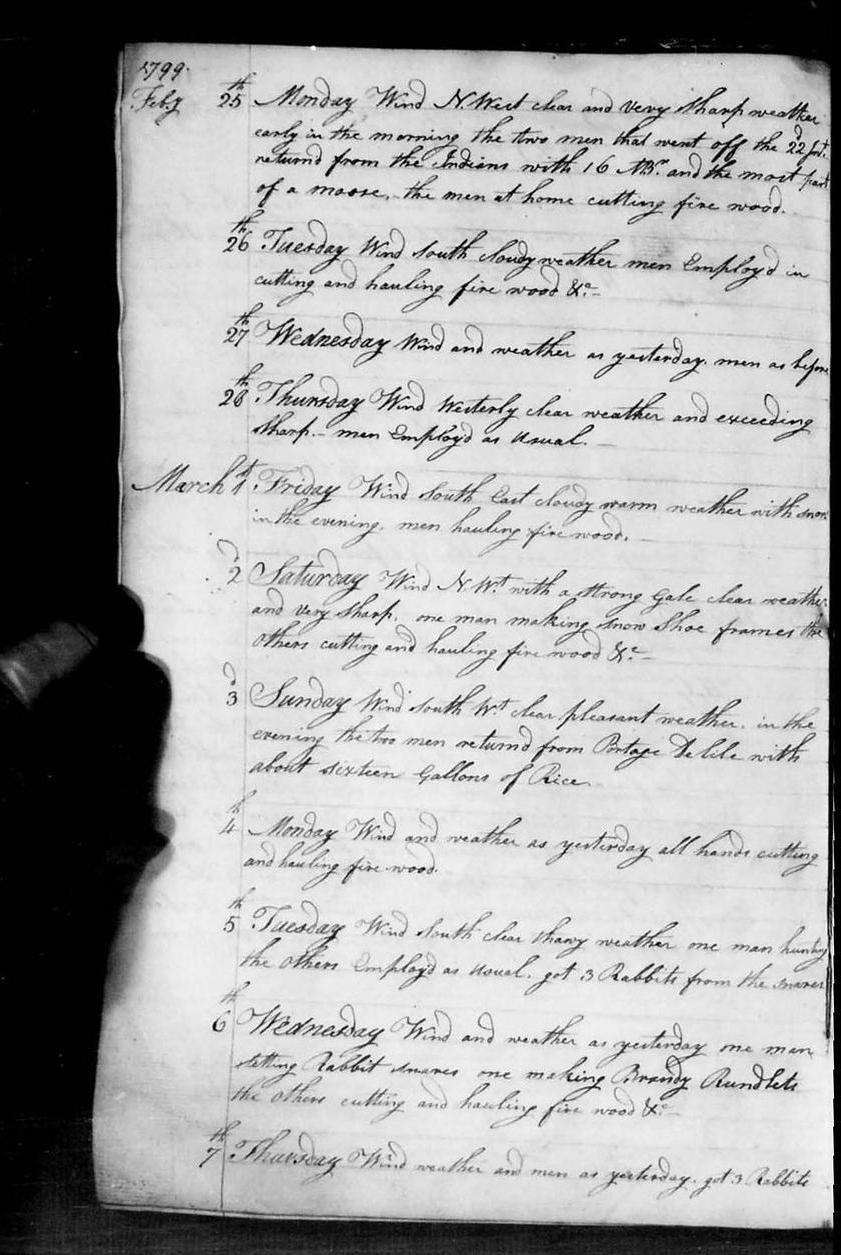 1799.
Feby 25th Monday Wind N. West clear and very sharp weather
early in the morning the two men that went off the 22d Inst.
returnd from the Indians with 16 MBr. and the most part
of a moose, the men at home cutting fire wood.
26th Tuesday Wind South cloudy weather men Employd in
cutting and hauling fire wood &c.–
27th Wednesday Wind and weather as yesterday. men as before
28th Thursday Wind Westerly clear weather and exceeding
sharp.– men Employd as Usual.–
March 1st Friday Wind South East cloudy warm weather with snow
in the evening. men hauling fire wood.
2d Saturday Wind N. Wt. with a strong Gale clear weather
and very sharp. one man making snow Shoe frames the
others cutting and hauling fire wood &c.–
3d Sunday Wind South Wt. clear pleasant weather. in the
evening the two men returnd from Portage De Lile with
about sixteen Gallons of Rice.
4th Monday Wind and weather as yesterday all hands cutting
and hauling fire wood.
5th Tuesday Wind South clear thawy weather one man hunting
the others Employd as Usual. got 3 Rabbits from the snares
6th Wednesday Wind and weather as yesterday one man
setting Rabbit snares one making Brandy Rundlets
the others cutting and hauling fire wood &c.–
7th Thursday Wind weather and men as yesterday. got 3 Rabbits